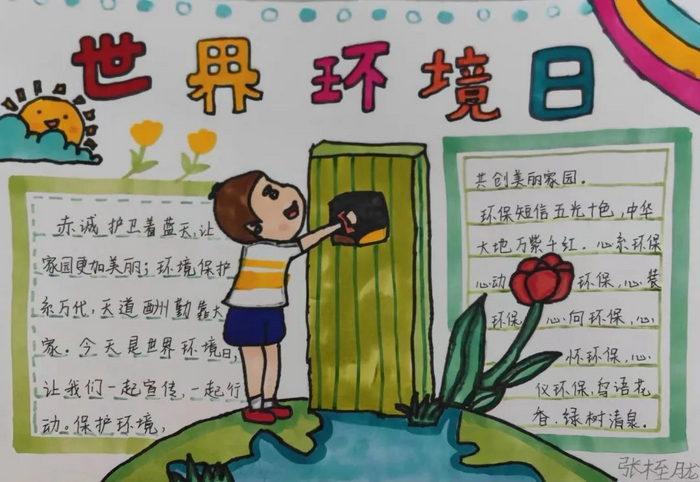 世界环境日
赤诚护卫着蓝天,让
家园更加美丽;环境保护
系万代,天道酬勤靠大
家。今天是世界环境日,
让我们一起宣传,一起行
动。保护环境,
共创美丽家园。
环保短信五光十色,中华
大地万紫千红。心系环保
心动环保,心赞
环保,心向环保,心
怀环保,心
仪环保,鸟语花
香、绿树清泉。
张桎胧